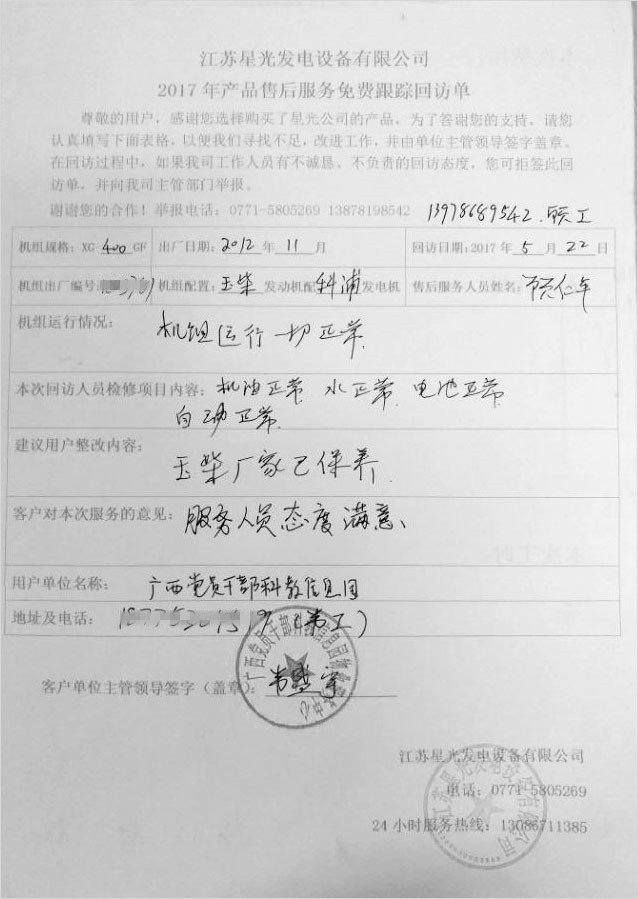 江苏星光发电设备有限公司
2017年产品售后服务免费跟踪回访单
尊敬的用户，感谢您选择购买了星光公司的产品，为了答谢您的支持，请您
认真填写下面表格，以便我们寻找不足，改进工作，并由单位主管领导签字盖章。
在回访过程中，如果我司工作人员有不诚恳、不负责的回访态度，您可拒签此回
访单，并向我司主管部门举报。
谢谢您的合作！举报电话：0771-5805269 13878198542 13978689542
机组规格：XG-400GF 出厂日期：2012年11月 回访日期：2017年5月22日
机组出厂编号： 机组配置：玉柴发动机配科浦发电机 售后服务人员姓名：
机组运行情况： 机组运行一切正常
本次回访人员检修项目内容：机油正常 水正常 电池正常
自动正常
建议用户整改内容：
玉柴厂家已保养
客户对本次服务的意见：服务人员态度满意
用户单位名称： 广西党员干部科教信息园
地址及电话：
客户单位主管领导签字（盖章）：
江苏星光发电设备有限公司
江苏星光发电设备有限公司
电话：0771-5805269
24小时服务热线：13086711385